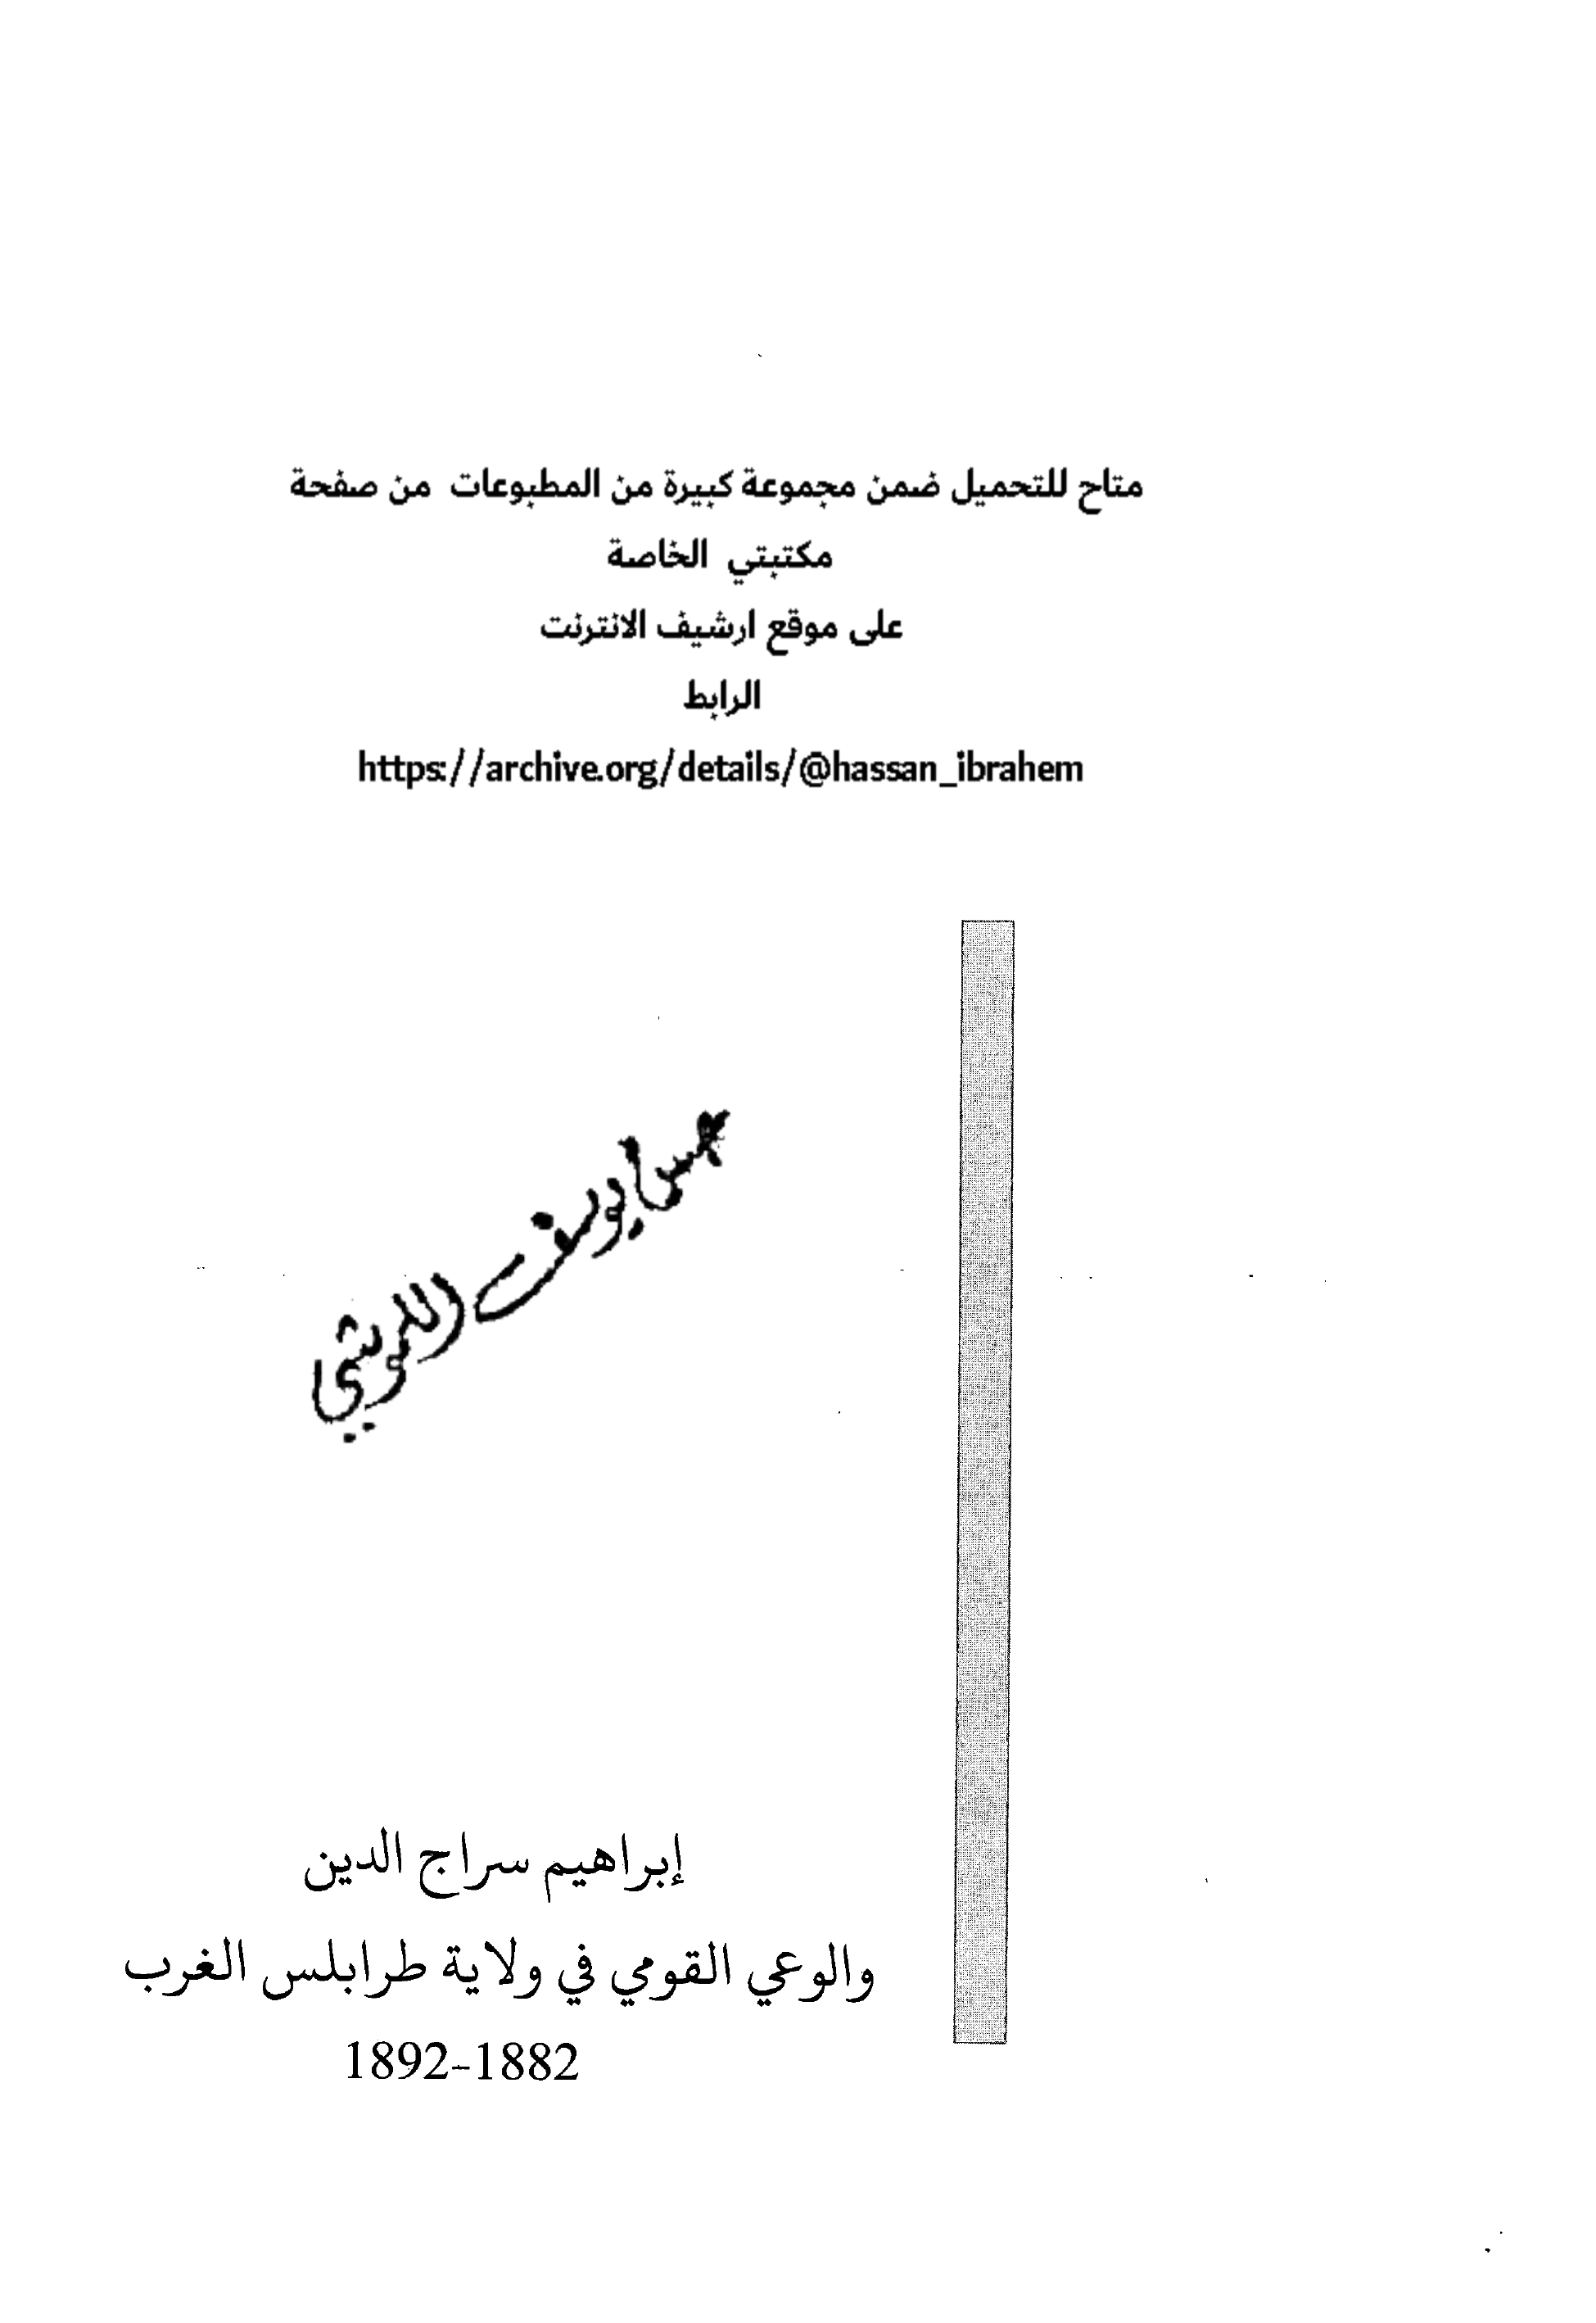 متاح للتحميل ضمن مجموعة كبيرة من المطبوعات من صفحة
مكتبتي الخاصة
على موقع ارشيف الانترنت
الرابط
https://archive.org/details/@hassan_ibrahem
يوسف
إبراهيم سراج الدين
والوعي القومي في ولاية طرابلس الغرب
1892-1882